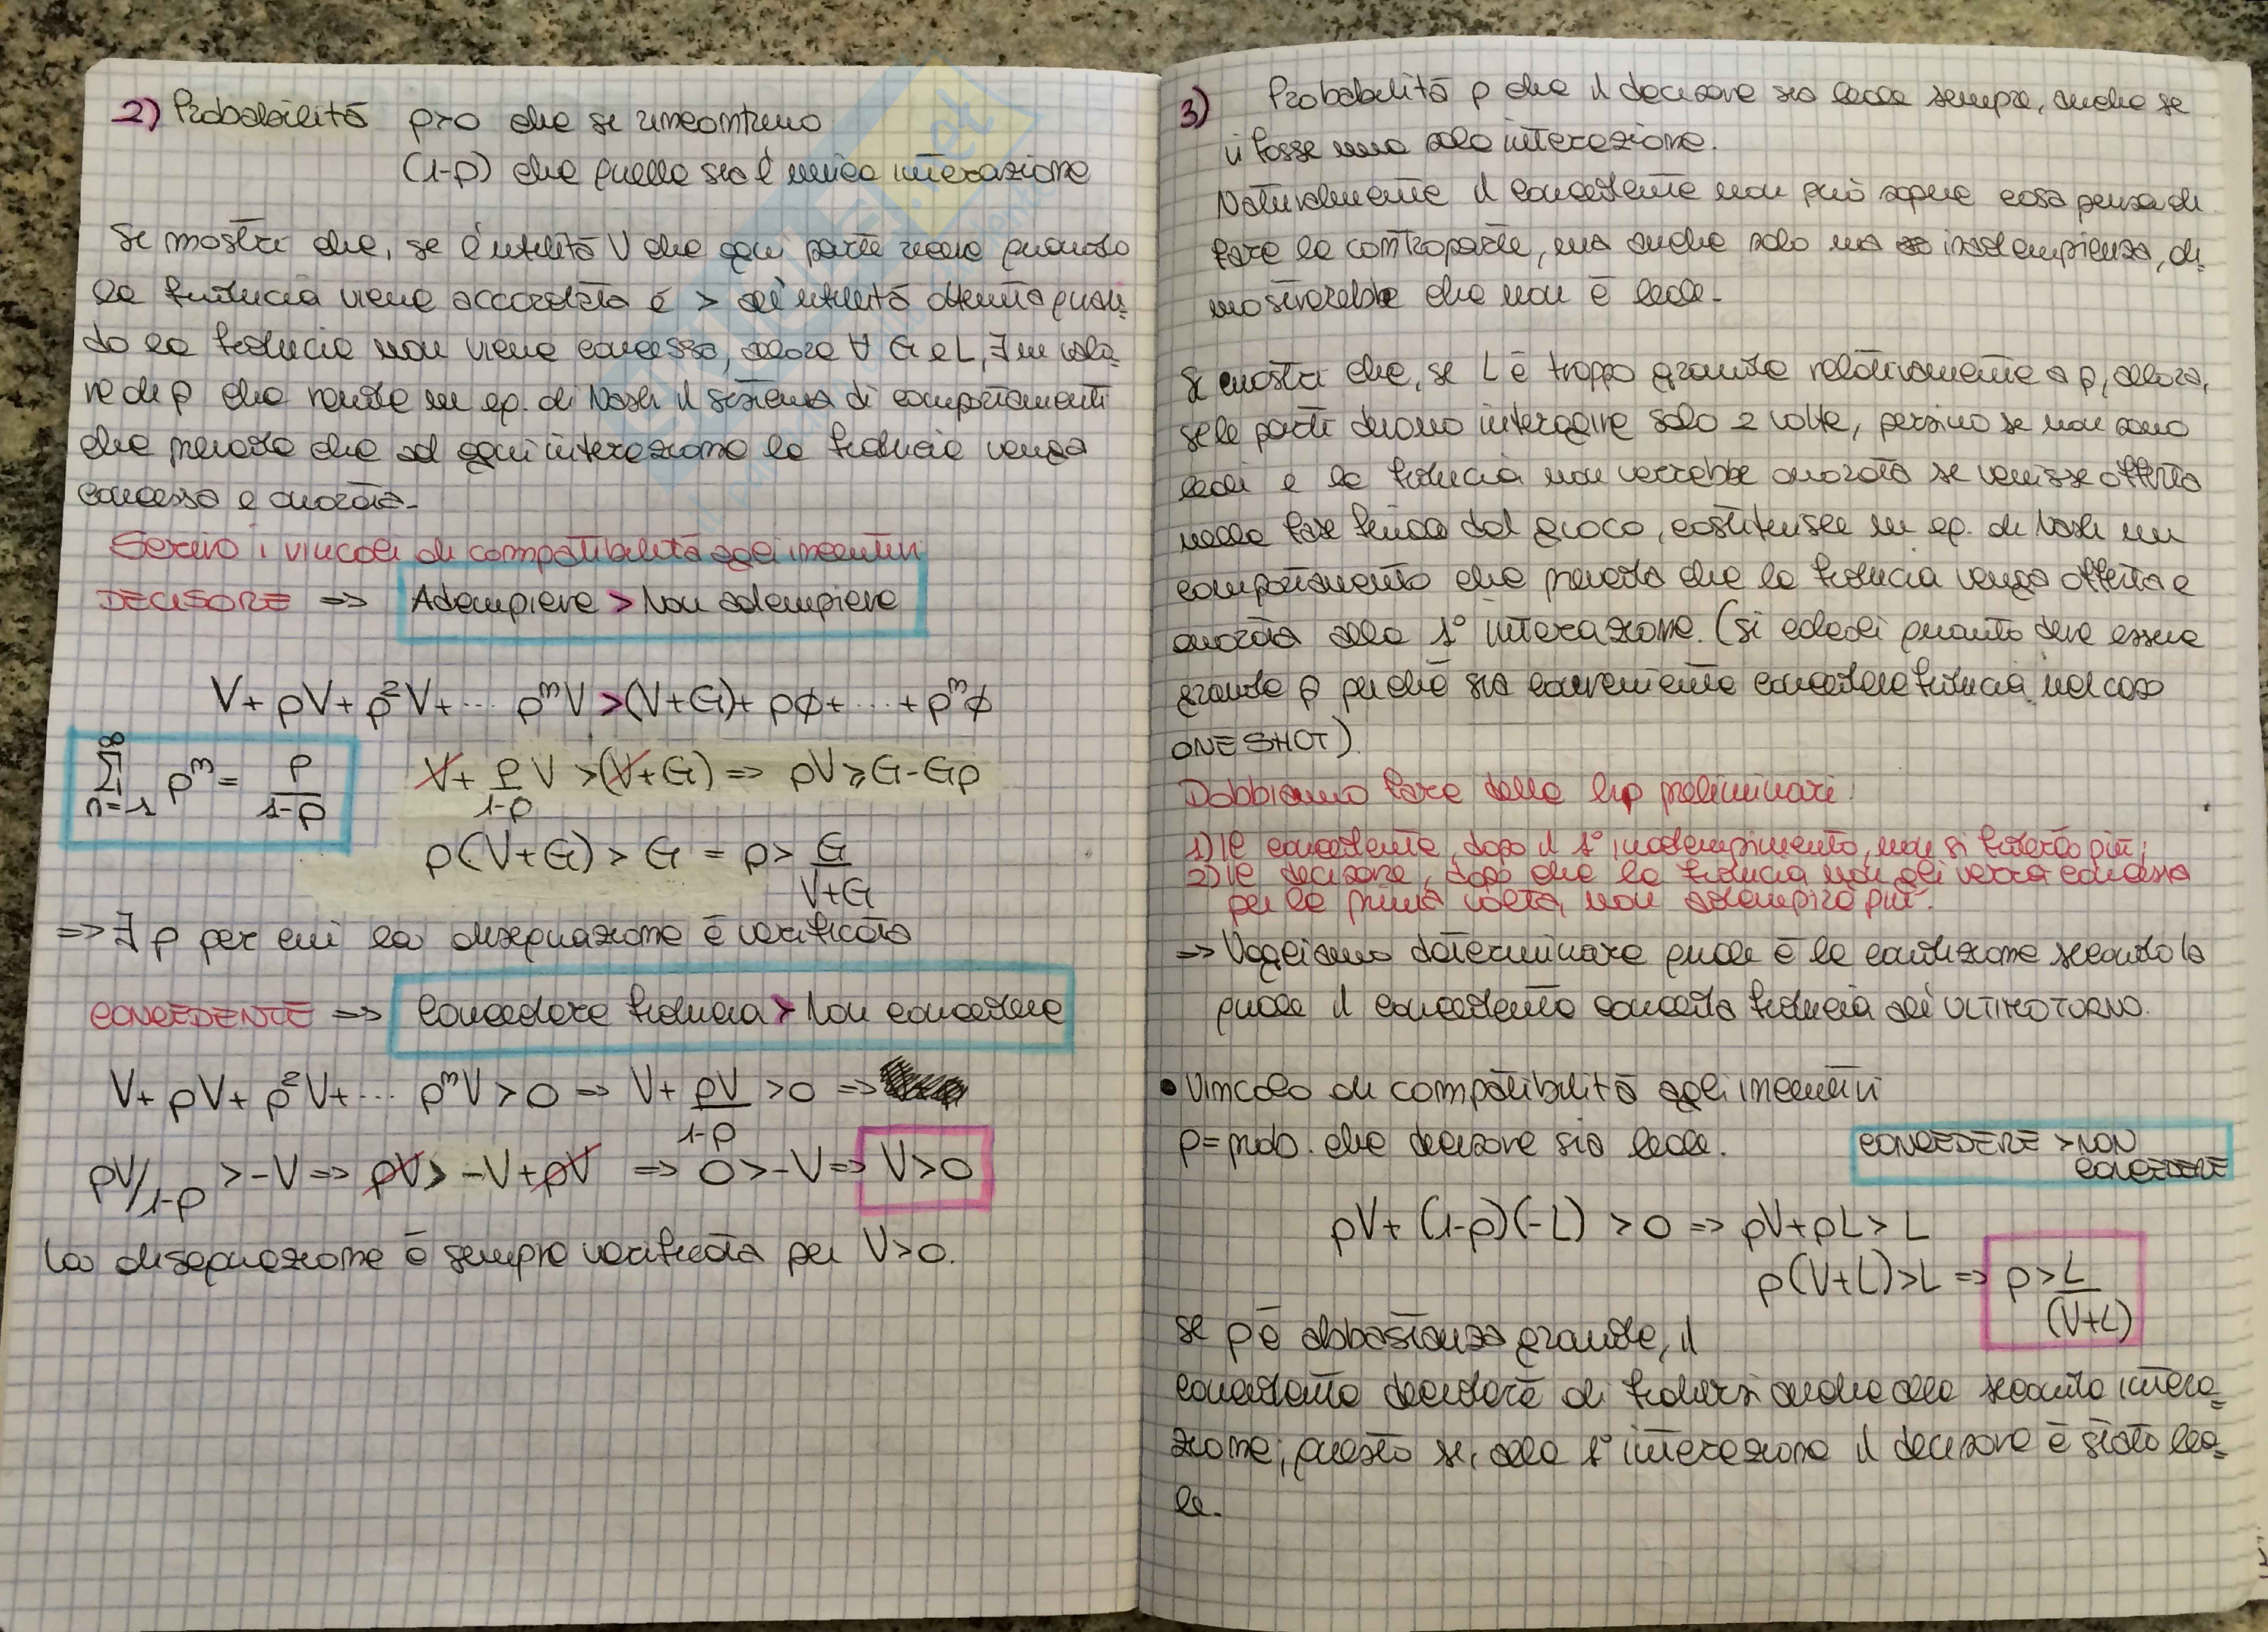 2) Probabilità p>0 che si rincontrino
(1-p) che quella sia l'unica interazione
Si mostri che, se l'utilità V che ogni parte riceve quando
la fiducia viene accordata è > all'utilità ottenuta quan=
do la fiducia non viene concessa, allora ∀ G e L, ∃ un valo=
re di p che rende un eq. di Nash il sistema di comportamenti
che prevede che ad ogni interazione la fiducia venga
concessa e onorata.
Scrivo i vincoli di compatibilità agli incentivi
DECISORE => Adempiere > Non adempiere
V + pV + p²V + ... pⁿV > (V+G) + pø + ... + pⁿø
∞
∑ pⁿ = p/1-p
n=1
V + p/1-p V > (V+G) => pV ≥ G-Gp
p(V+G) > G = p > G/V+G
=> ∃ p per cui la disequazione è verificata
CONCEDENTE => Concedere fiducia > Non concedere
V + pV + p²V + ... pⁿV > 0 => V + pV/1-p > 0 =>
pV/1-p > -V => pV > -V + pV => 0 > -V => V > 0
La disequazione è sempre verificata per V>0.
3) Probabilità p che il decisore sia leale sempre, anche se
vi fosse una sola interazione.
Naturalmente il concedente non può sapere cosa pensa di
fare la controparte, ma anche solo una inadempienza, di=
mostrerebbe che non è leale.
Si mostri che, se L è troppo grande relativamente a p, allora,
se le parti devono interagire solo 2 volte, persino se non sono
leali e la fiducia non verrebbe onorata se venisse offerta
nella fase finale del gioco, costituisce un eq. di Nash un
comportamento che preveda che la fiducia venga offerta e
onorata alla 1° interazione. (Si calcoli quanto deve essere
grande p perché sia conveniente concedere fiducia nel caso
ONE SHOT).
Dobbiamo fare delle hp preliminari:
1) Il concedente, dopo il 1° inadempimento, non si fiderà più;
2) Il decisore, dopo che la fiducia non gli verrà concessa
per la prima volta, non adempirà più.
=> Vogliamo determinare quale è la condizione secondo la
quale il concedente concede fiducia all'ULTIMO TURNO.
• Vincolo di compatibilità agli incentivi
p = prob. che decisore sia leale. CONCEDERE > NON
CONCEDERE
pV + (1-p)(-L) > 0 => pV + pL > L
p(V+L) > L => p > L/(V+L)
Se p è abbastanza grande, il
concedente deciderà di fidarsi anche alla seconda intera=
zione; questo se, alla 1° interazione il decisore è stato lea=
le.